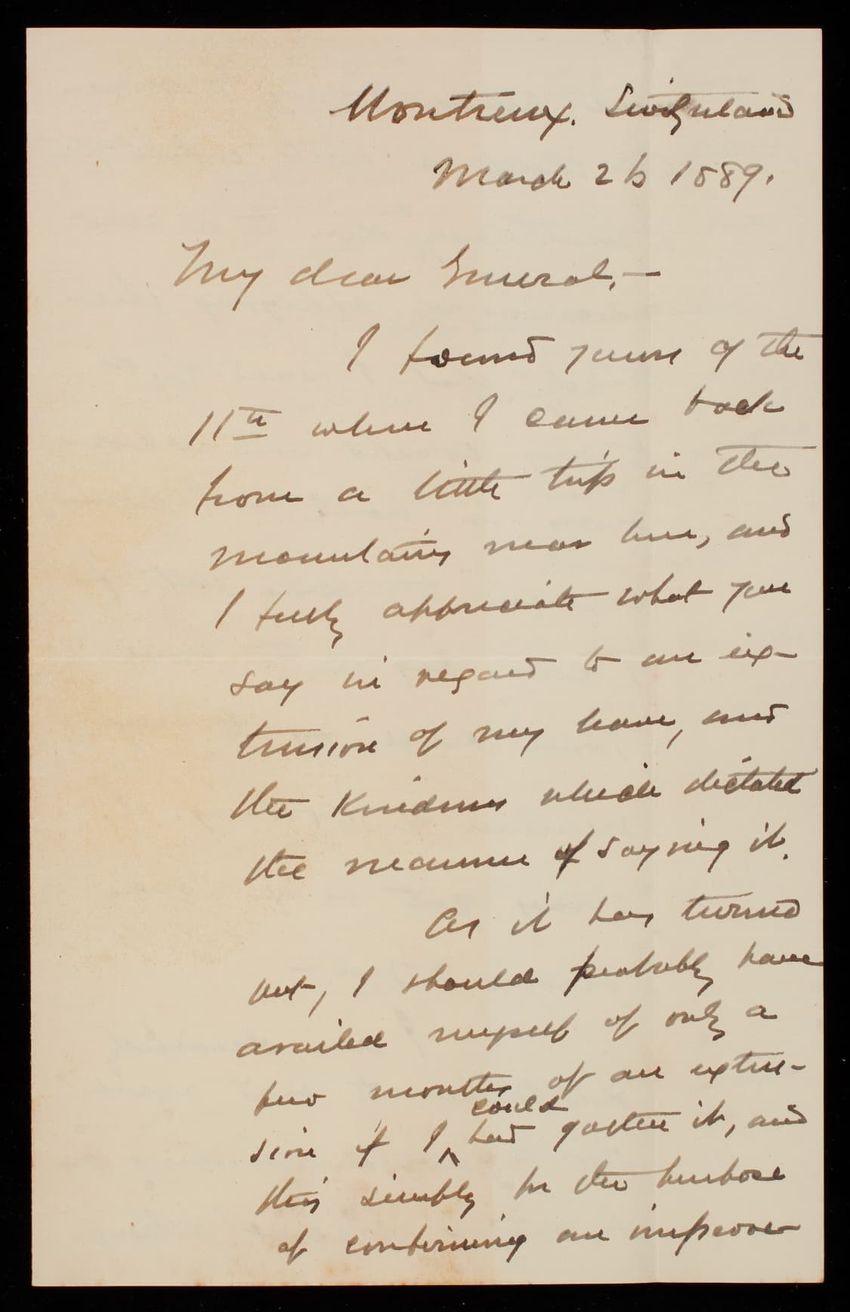 Montreux. Switzerland
March 26 1889.
My dear General,—
I found yours of the
11th when I came back
from a little trip in the
mountains near here, and
I fully appreciate what you
say in regard to an ex-
tension of my leave, and
the kindness which dictated
the manner of saying it.
As it has turned
out, I should probably have
availed myself of only a
few months of an exten-
sion if I could have gotten it, and
this simply for the purpose
of confirming an improve-